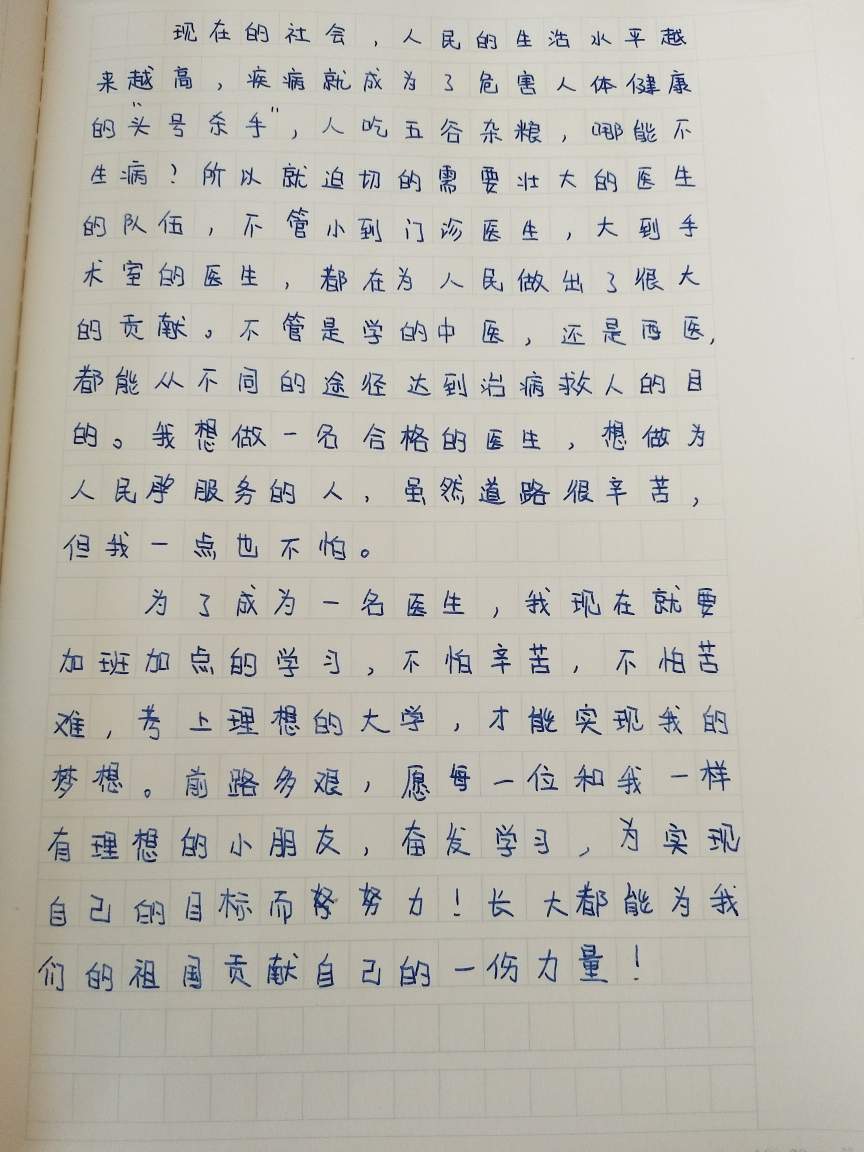 现在的社会，人民的生活水平越
来越高，疾病就成为了危害人体健康
的"头号杀手"，人吃五谷杂粮，哪能不
生病？所以就迫切的需要壮大的医生
的队伍，不管小到门诊医生，大到手
术室的医生，都在为人民做出了很大
的贡献。不管是学的中医，还是西医，
都能从不同的途径达到治病救人的目
的。我想做一名合格的医生，想做为
人民服务的人，虽然道路很辛苦，
但我一点也不怕。
为了成为一名医生，我现在就要
加班加点的学习，不怕辛苦，不怕苦
难，考上理想的大学，才能实现我的
梦想。前路多艰，愿每一位和我一样
有理想的小朋友，奋发学习，为实现
自己的目标而努力！长大都能为我
们的祖国贡献自己的一份力量！